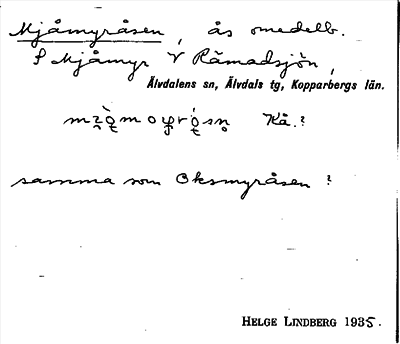 Mjåmyråsen, ås omedelb.
S Mjåmyr V Rämadsjön,
Älvdalens sn, Älvdals tg, Kopparbergs län.
Kå.?
samma som Oksmyråsen?
HELGE LINDBERG 1935.